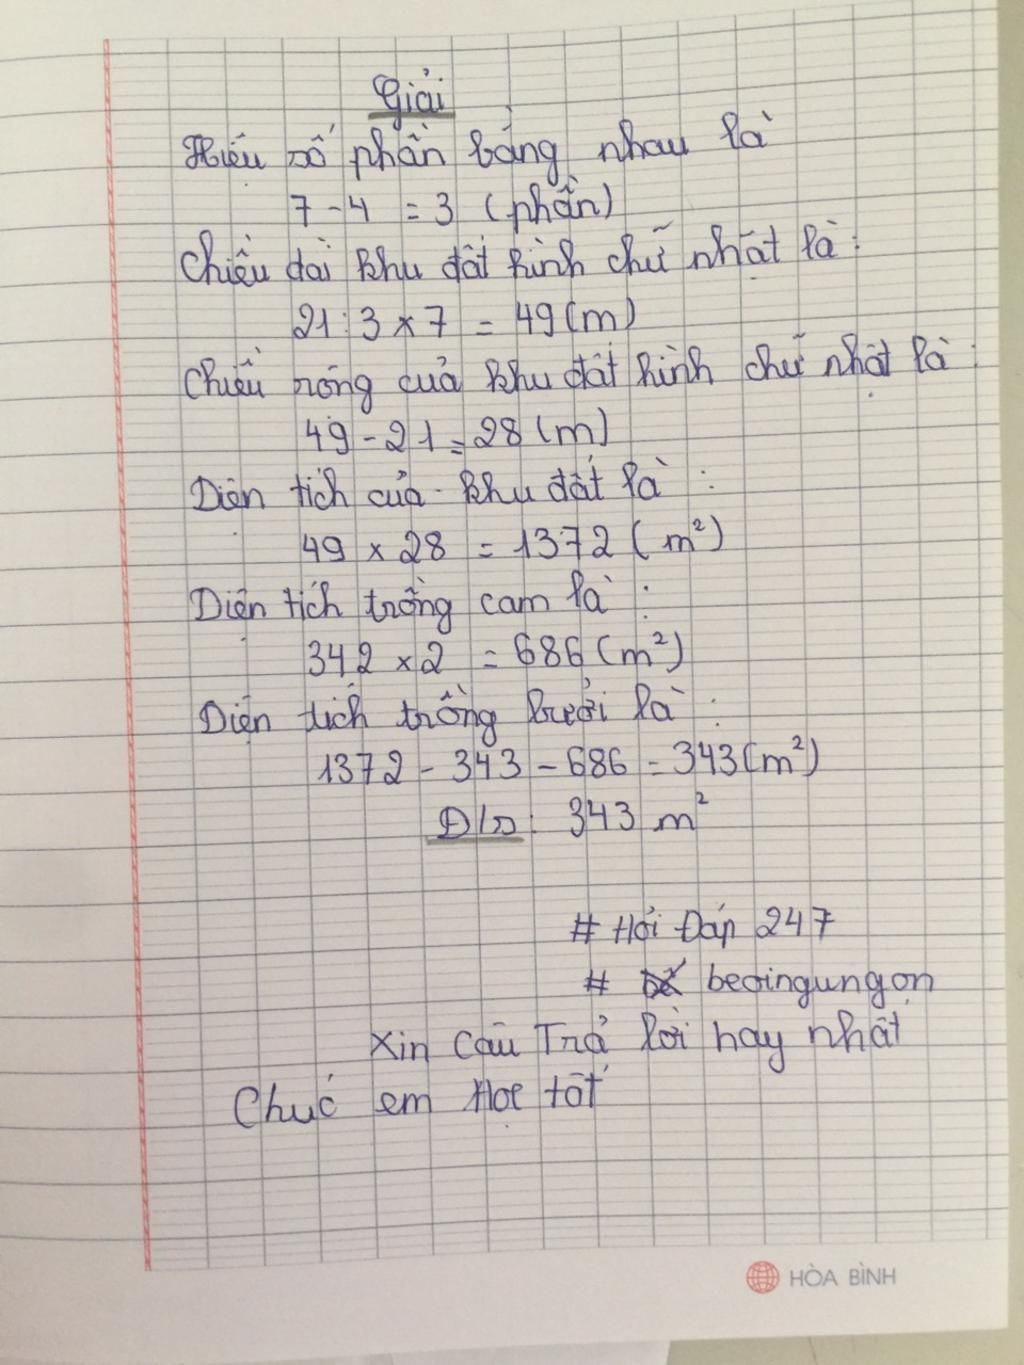 Giải
Hiệu số phần bằng nhau là
7 - 4 = 3 (phần)
Chiều dài khu đất hình chữ nhất là:
21:3 x 7 = 49(m)
Chiều rộng của khu đất hình chữ nhật là:
49 - 21 = 28(m)
Diện tích của khu đất là:
49 x 28 = 1372 (m²)
Diện tích trồng cam là:
342 x 2 = 686 (m²)
Diện tích trồng bưởi là:
1372 - 343 - 686 = 343(m²)
Đ/S: 343 m²
# Hỏi Đáp 247
# beoingungon
Xin Câu Trả lời hay nhất
Chúc em Học tốt
HÒA BÌNH